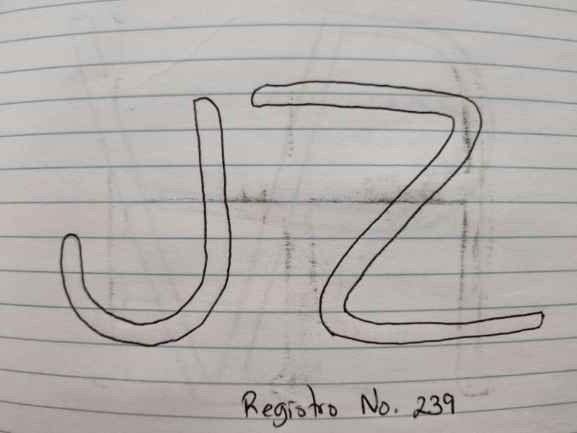 JZ
Registro No. 239